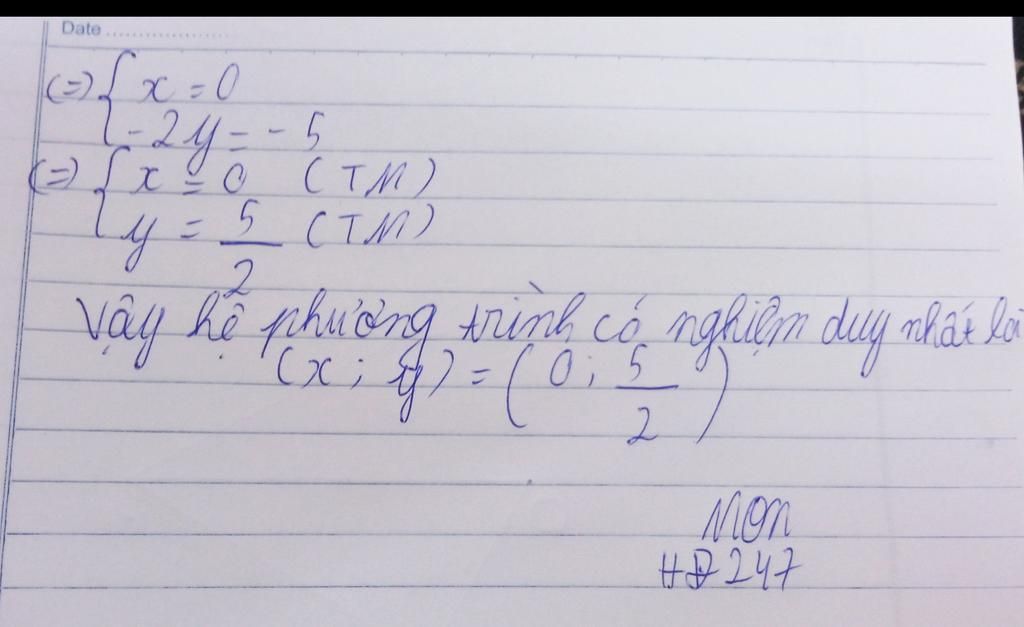 Date ....................
(=) { x = 0
-2y = - 5
(=) { x = 0 (TM)
y = 5/2 (TM)
Vậy hệ phương trình có nghiệm duy nhất là
(x ; y) = (0 ; 5/2)
Mon
HĐ 247